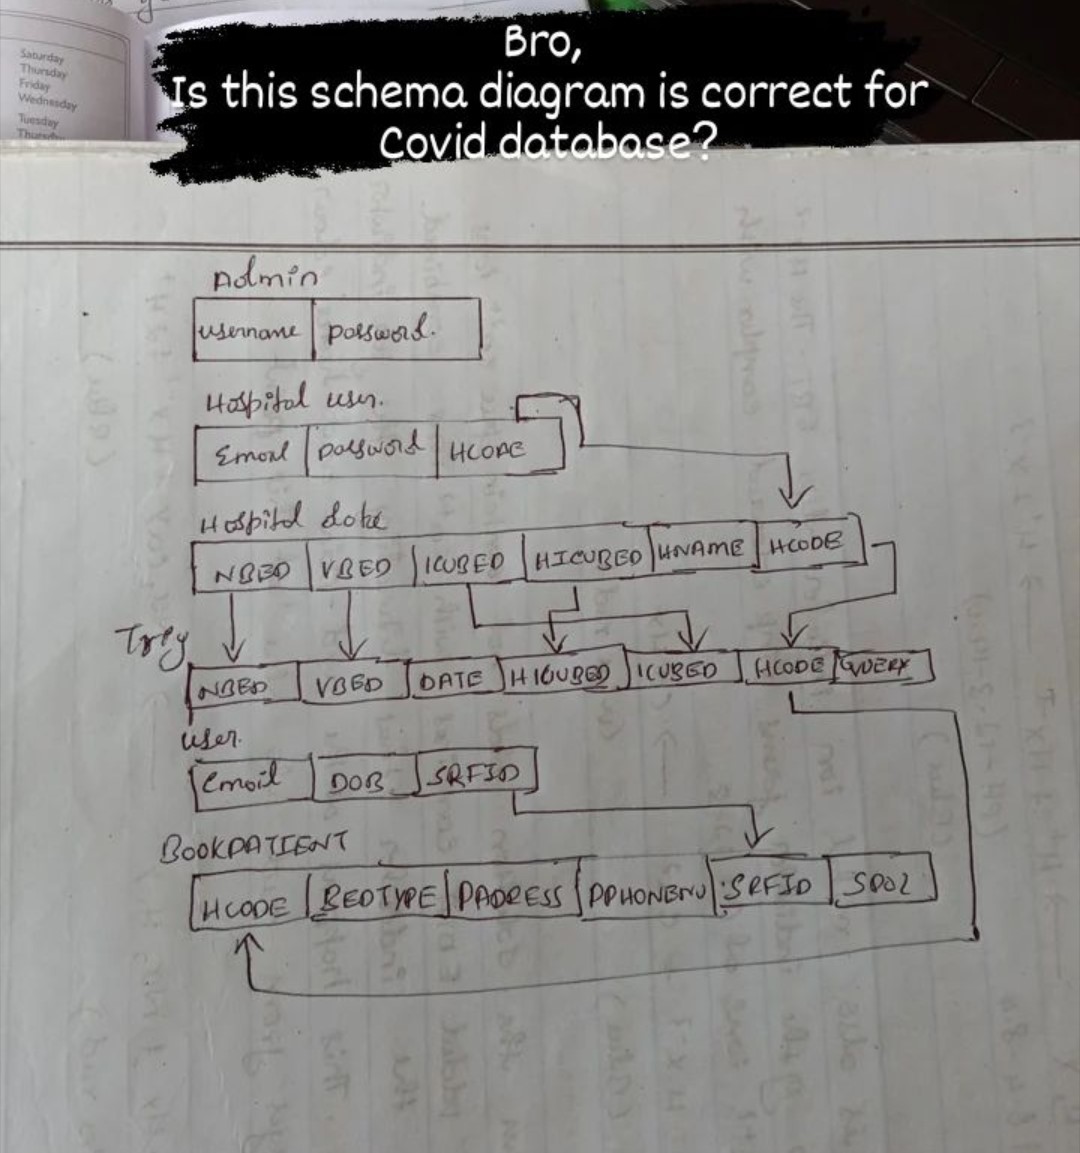 Saturday
Thursday
Friday
Wednesday
Tuesday
Bro,
Is this schema diagram is correct for
Covid database?
Admin
username password.
Hospital user.
Email password HCODE
Hospital
NBED VBED ICUBED HICUBED HNAME HCODE
NBED VBED DATE HICUBED ICUBED HCODE QUERY
user.
Email DOB SRFID
BOOKPATIENT
HCODE BEDTYPE PADRESS PPHONENU SRFID SPO2